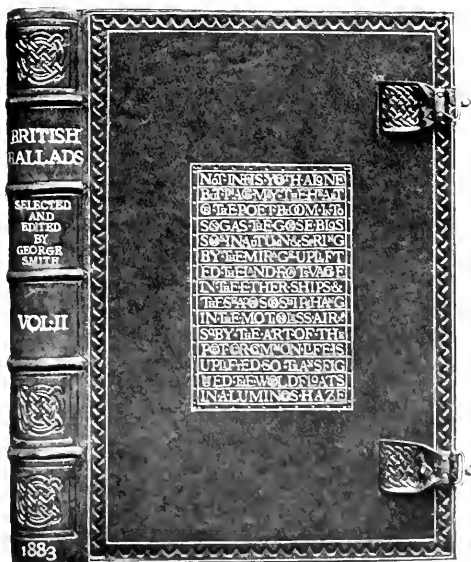 BRITISH
BALLADS
SELECTED
AND
EDITED
BY
GEORGE
SMITH
VOL:II
1883
NOT·IN·HIS·YOUTH·ALONE
THE·HEART
OF·THE·POET·BLOOM·INTO
SONG·AS·THE·GORSE·BLOS
SOMS·IN·AUTUMN·&·SPRING
BY·THE·MIRAGE·UPLIFT
ED·THE·LAND·FLOATS·VAGUE
IN·THE·ETHER·SHIPS·&
OF·SHIPS·HANG
IN·THE·MOTIONLESS·AIR
SO·BY·THE·ART·OF·THE
POET·OUR·COMMON·LIFE·IS
UPLIFTED·SO·TRANSFIG
URED·THE·WORLD·FLOATS
IN·A·LUMINOUS·HAZE